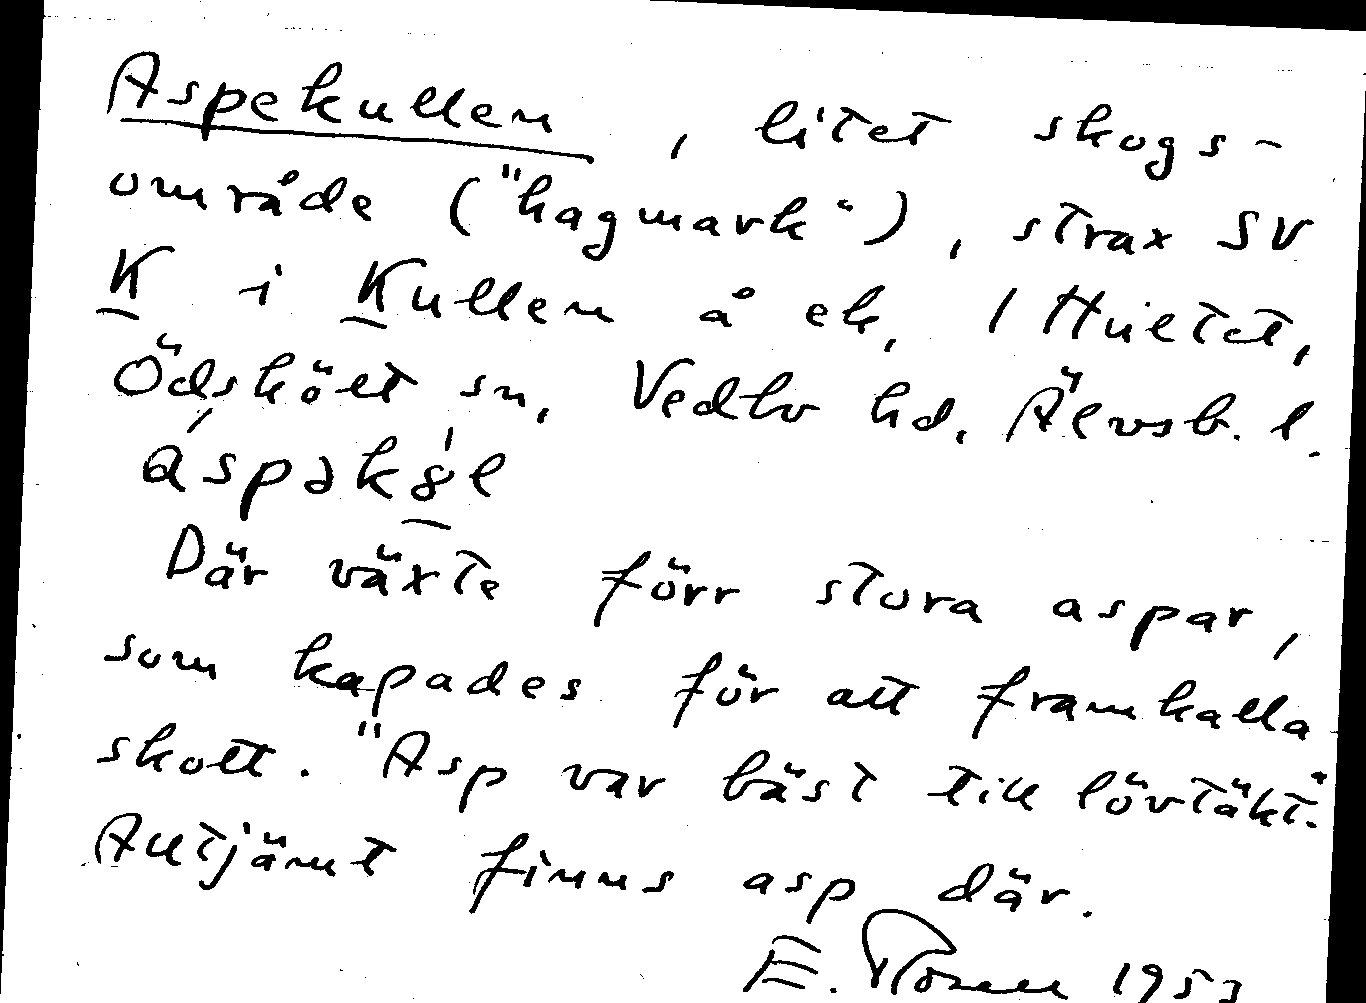 Aspekullen, litet skogs-
område ("hagmark"), strax SV
K i Kullen å ek. 1 Hultet,
Ödsköłt sn, Vedbo hd, Älvsb. l.
áspəkøl
Där växte förr stora aspar,
som kapades för att framkalla
skott. "Asp var bäst till lövtäkt."
Alltjämt finns asp där.
E. 1953